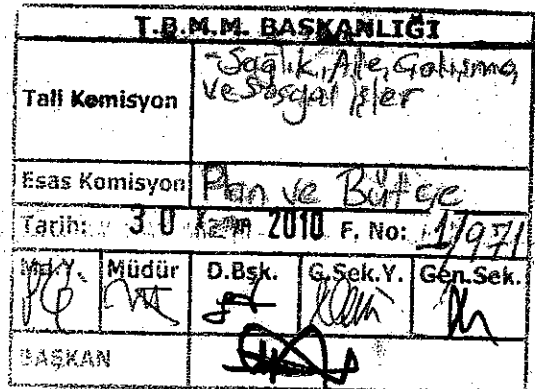 T.B.M.M. BAŞKANLIĞI
Tali Komisyon
-Sağlık, Aile, Çalışma,
ve Sosyal İşler
Esas Komisyon Plan ve Bütçe
Tarih: 30 Kasım 2010 F. No: 1/971
Md.Y. Müdür D.Bşk. G.Sek.Y. Gen.Sek.
BAŞKAN